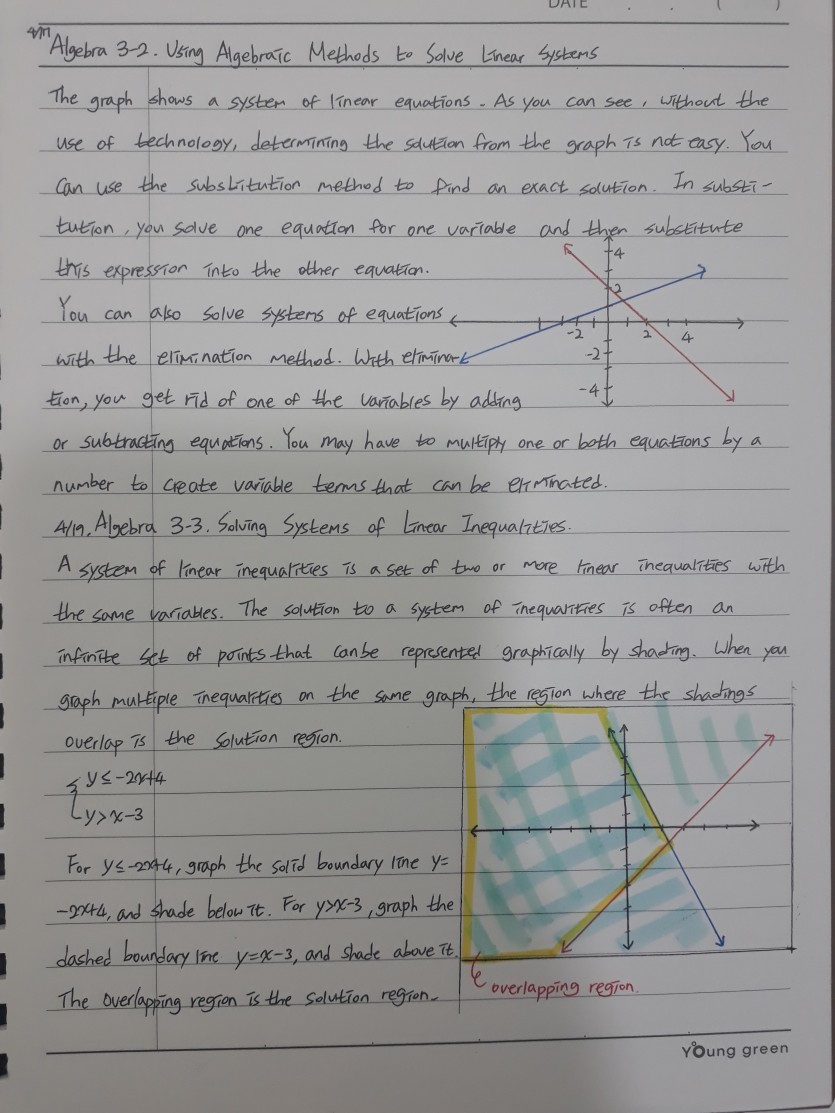 DATE . . ( )
4/17 Algebra 3-2. Using Algebraic Methods to Solve Linear Systems
The graph shows a system of linear equations. As you can see, without the
use of technology, determining the solution from the graph is not easy. You
can use the substitution method to find an exact solution. In substi-
tution, you solve one equation for one variable and then substitute
this expression into the other equation.
You can also solve systems of equations
with the elimination method. With elimina-
tion, you get rid of one of the variables by adding
or subtracting equations. You may have to multiply one or both equations by a
number to create variable terms that can be eliminated.
4
2
-2 2 4
-2
-4
4/19. Algebra 3-3. Solving Systems of Linear Inequalities.
A system of linear inequalities is a set of two or more linear inequalities with
the same variables. The solution to a system of inequalities is often an
infinite set of points that can be represented graphically by shading. When you
graph multiple inequalities on the same graph, the region where the shadings
overlap is the solution region.
{ y ≤ -2x+4
y > x-3
For y ≤ -2x+4, graph the solid boundary line y=
-2x+4, and shade below it. For y>x-3, graph the
dashed boundary line y=x-3, and shade above it.
The overlapping region is the solution region.
overlapping region.
Young green